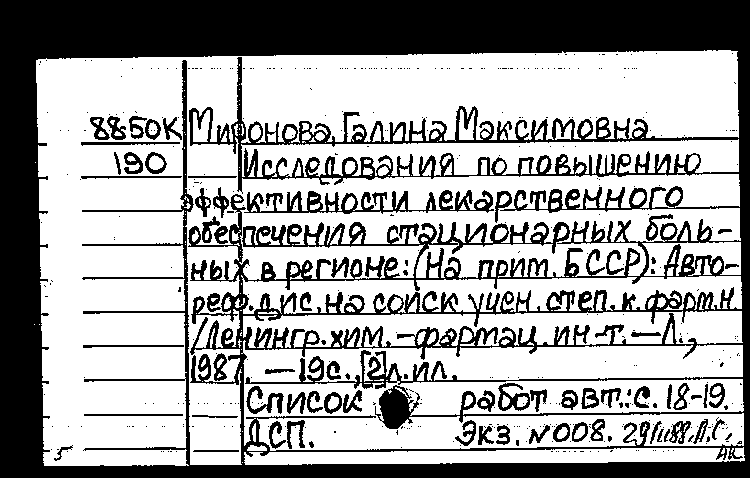 88-50К Миронова, Галина Максимовна.
190 Исследования по повышению
эффективности лекарственного
обеспечения стационарных боль-
ных в регионе: (На прим. БССР): Авто-
реф. дис. на соиск. учен. степ. к. фарм. н.
/Ленингр. хим. -фармац. ин-т. — Л.,
1987. — 19с., [2]л. ил.
Список работ авт.: с. 18-19.
ДСП. Экз. №008.
5 ЧК